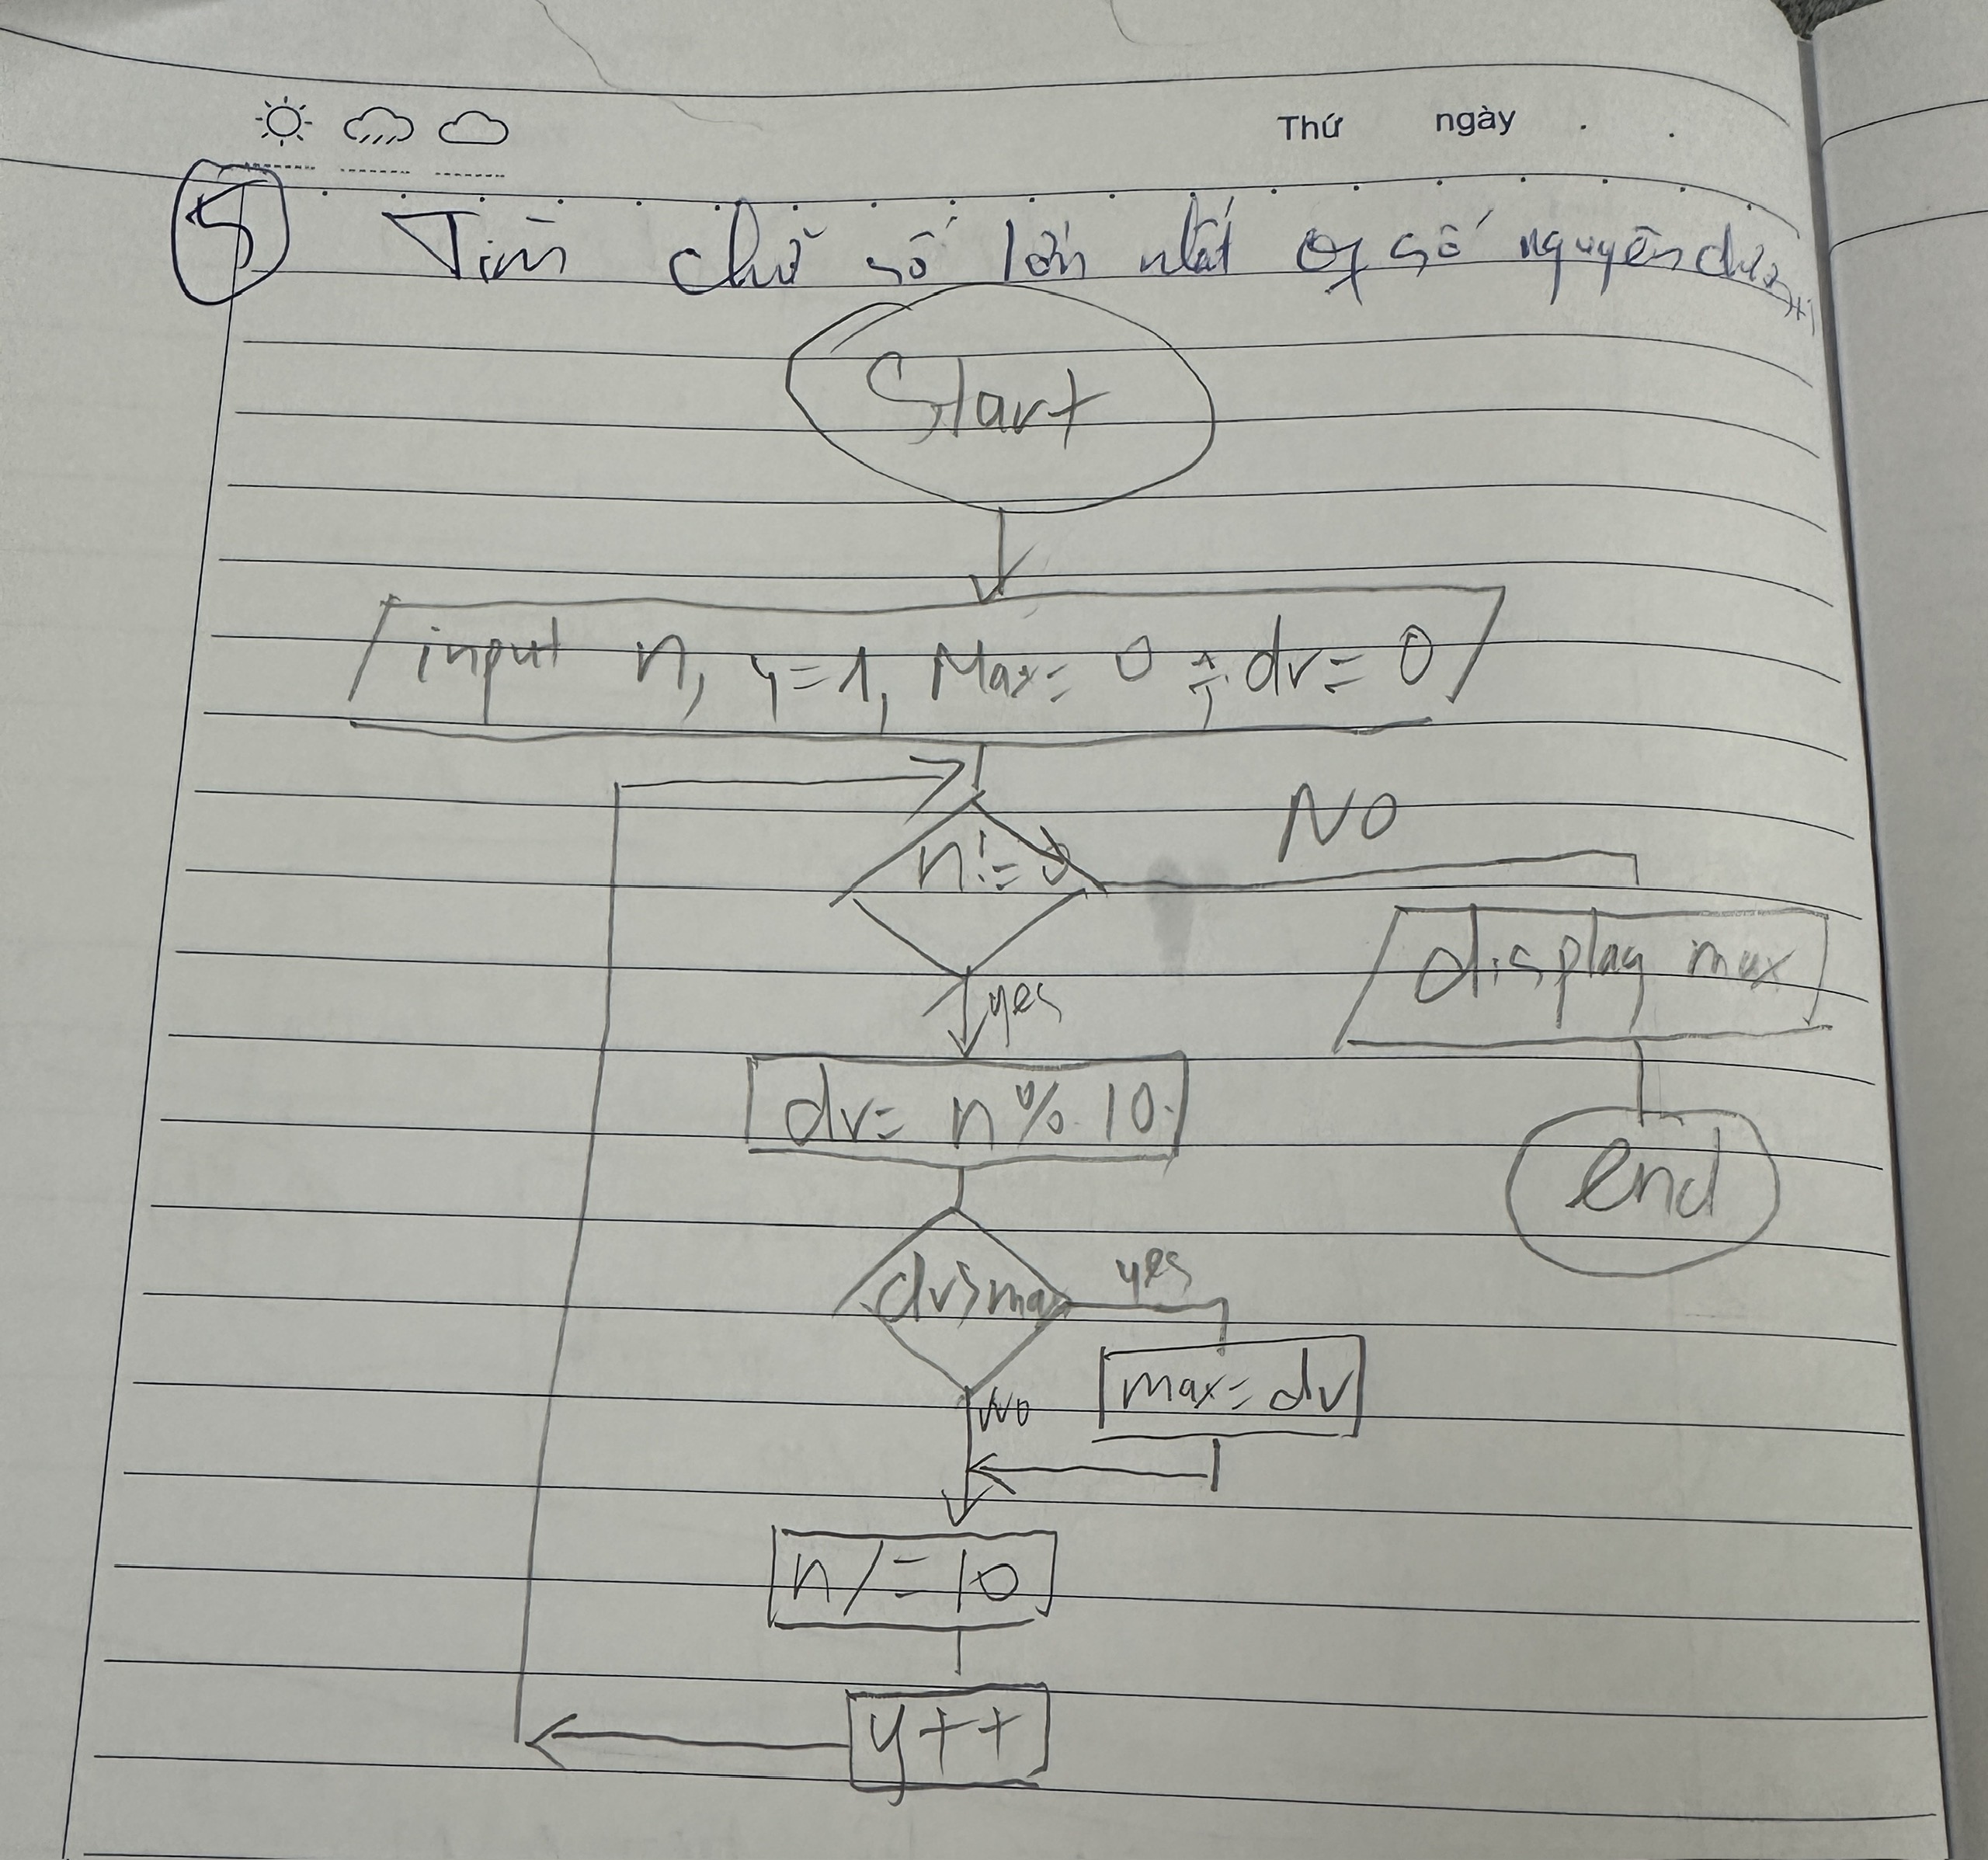 Thứ ngày
5 Tìm chữ số lớn nhất of số nguyên
Start
input n, y=1, Max= 0; dv= 0
n!=0
NO
display max
end
yes
dv= n%10
dv>max
yes
max= dv
NO
n/=10
y++